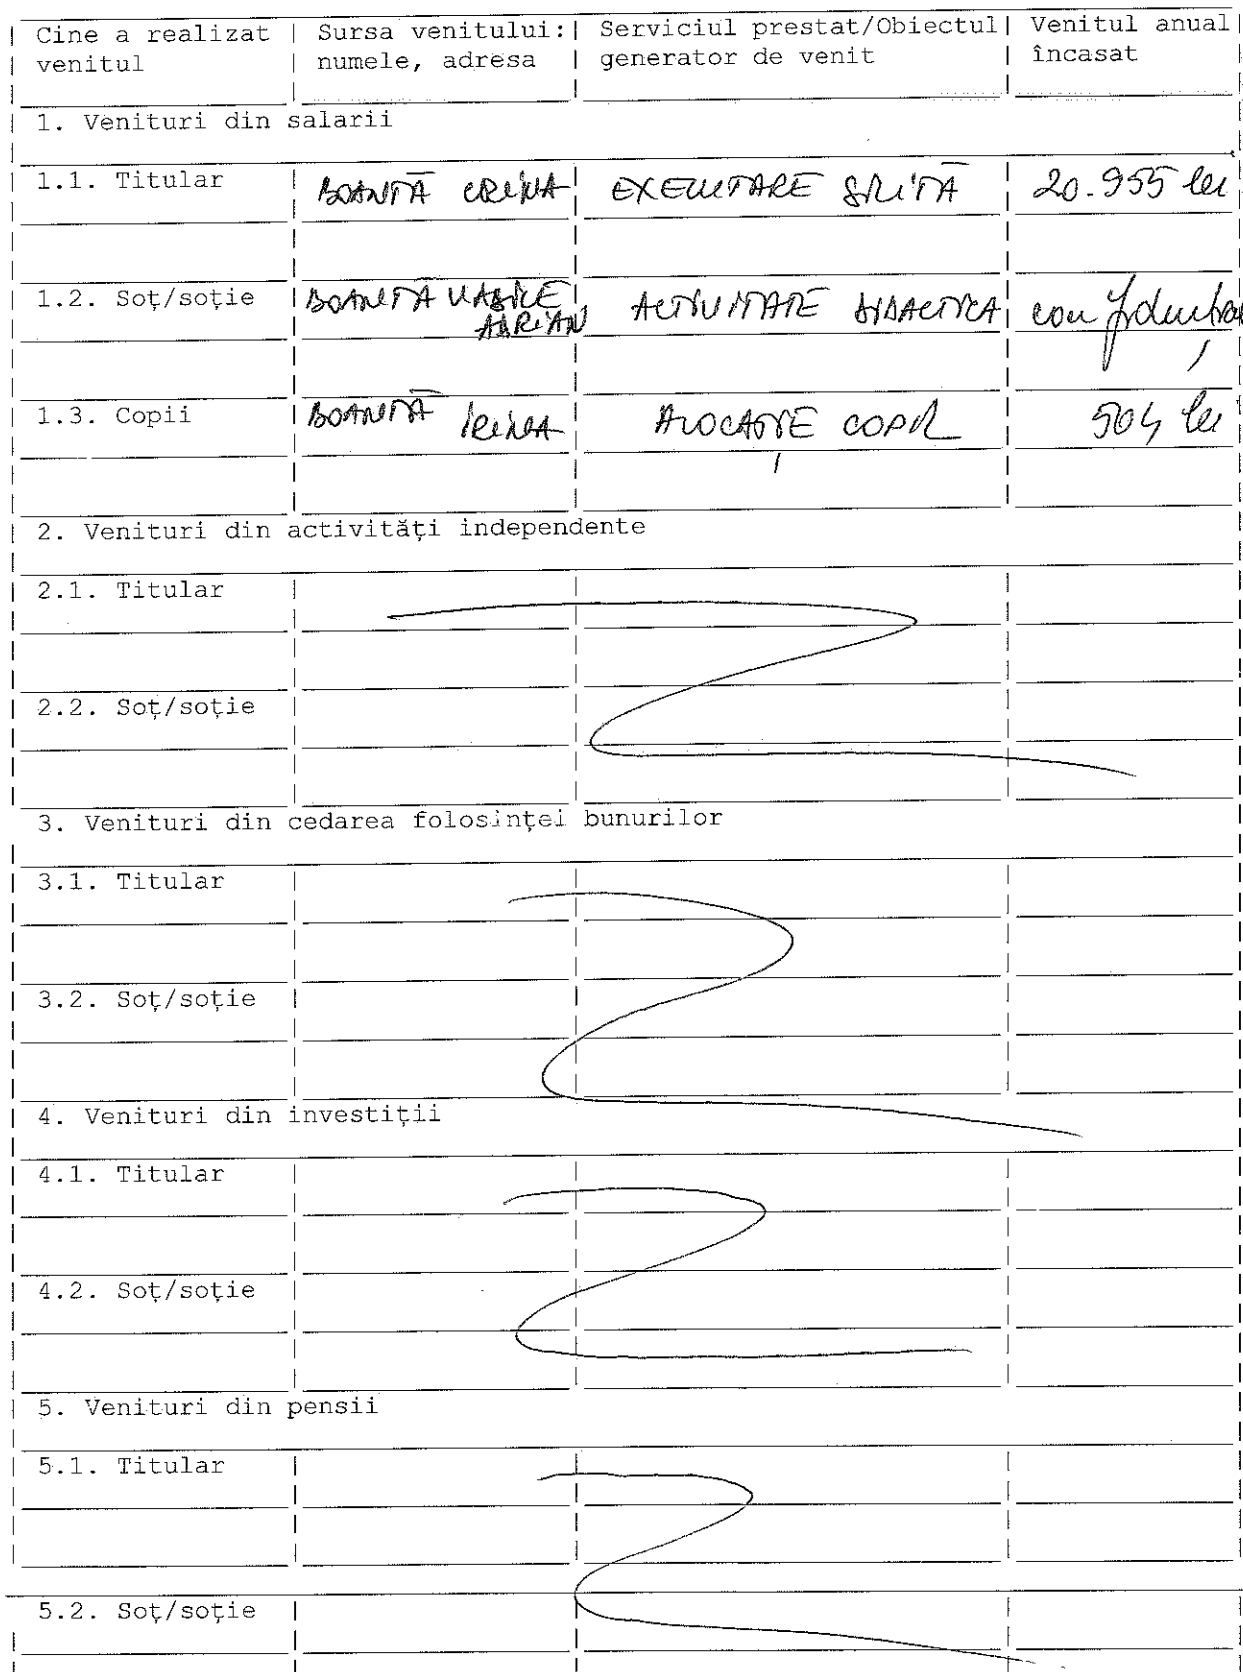 Cine a realizat | Sursa venitului: | Serviciul prestat/Obiectul | Venitul anual
venitul | numele, adresa | generator de venit | încasat
1. Venituri din salarii
1.1. Titular | BOANŢĂ CRINA | EXECUTARE SILITĂ | 20.955 lei
1.2. Soţ/soţie | BOANŢĂ VASILE | ACTIVITATE DIDACTICA | confidenţial
ADRIAN
1.3. Copii | BOANŢĂ IRINA | ALOCAŢIE COPIL | 504 lei
2. Venituri din activităţi independente
2.1. Titular
2.2. Soţ/soţie
3. Venituri din cedarea folosinţei bunurilor
3.1. Titular
3.2. Soţ/soţie
4. Venituri din investiţii
4.1. Titular
4.2. Soţ/soţie
5. Venituri din pensii
5.1. Titular
5.2. Soţ/soţie